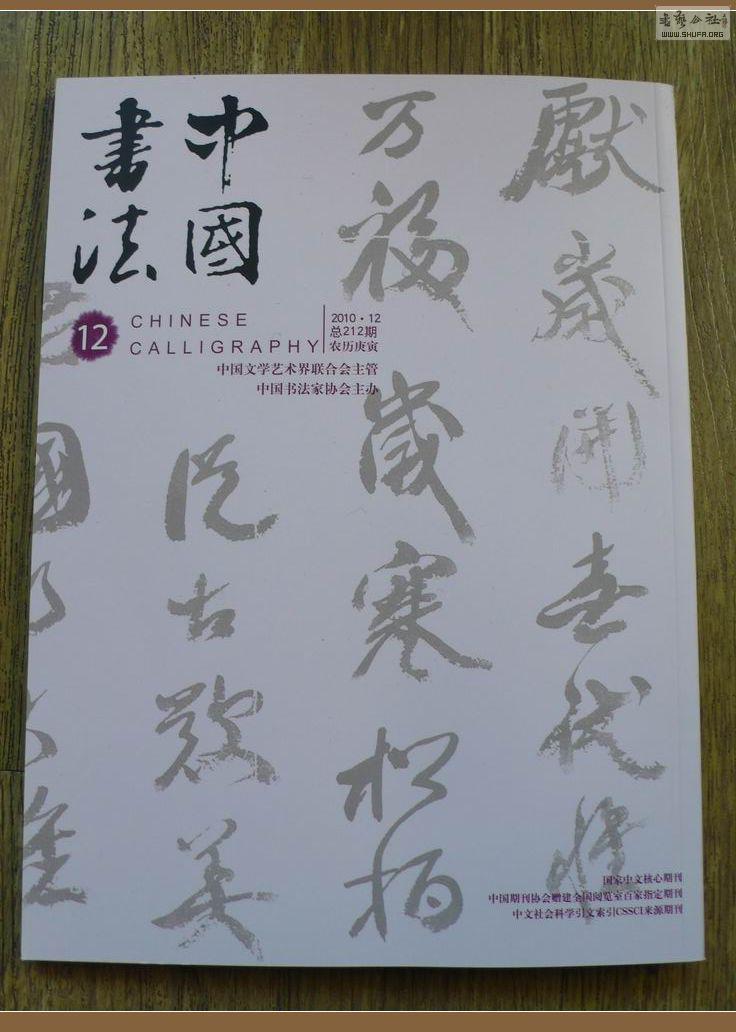 書藝公社
WWW.SHUFA.ORG
中國
書法
12
CHINESE
CALLIGRAPHY
2010·12
总212期
农历庚寅
中国文学艺术界联合会主管
中国书法家协会主办
獻歲開春伏惟
万福歲寒松柏
從古歎美
国家中文核心期刊
中国期刊协会赠建全国阅览室百家指定期刊
中文社会科学引文索引CSSCI来源期刊